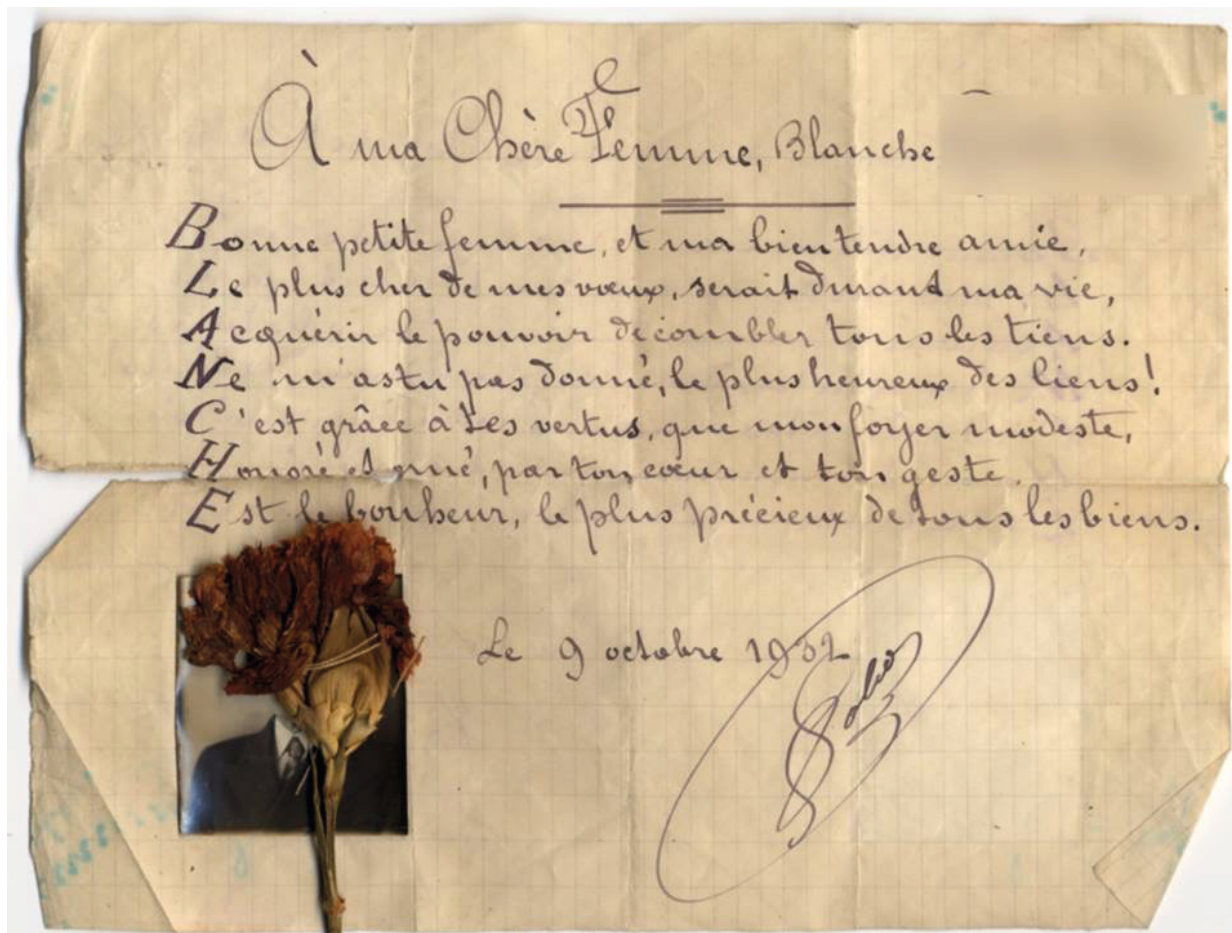 À ma Chère Femme, Blanche
Bonne petite femme, et ma bien tendre amie,
Le plus cher de mes vœux, serait durant ma vie,
Acquérir le pouvoir de combler tous les tiens.
Ne m'as tu pas donné, le plus heureux des liens!
C'est grâce à tes vertus, que mon foyer modeste,
Honoré et orné, par ton cœur et ton geste.
Est le bonheur, le plus précieux de tous les biens.
Le 9 octobre 1932